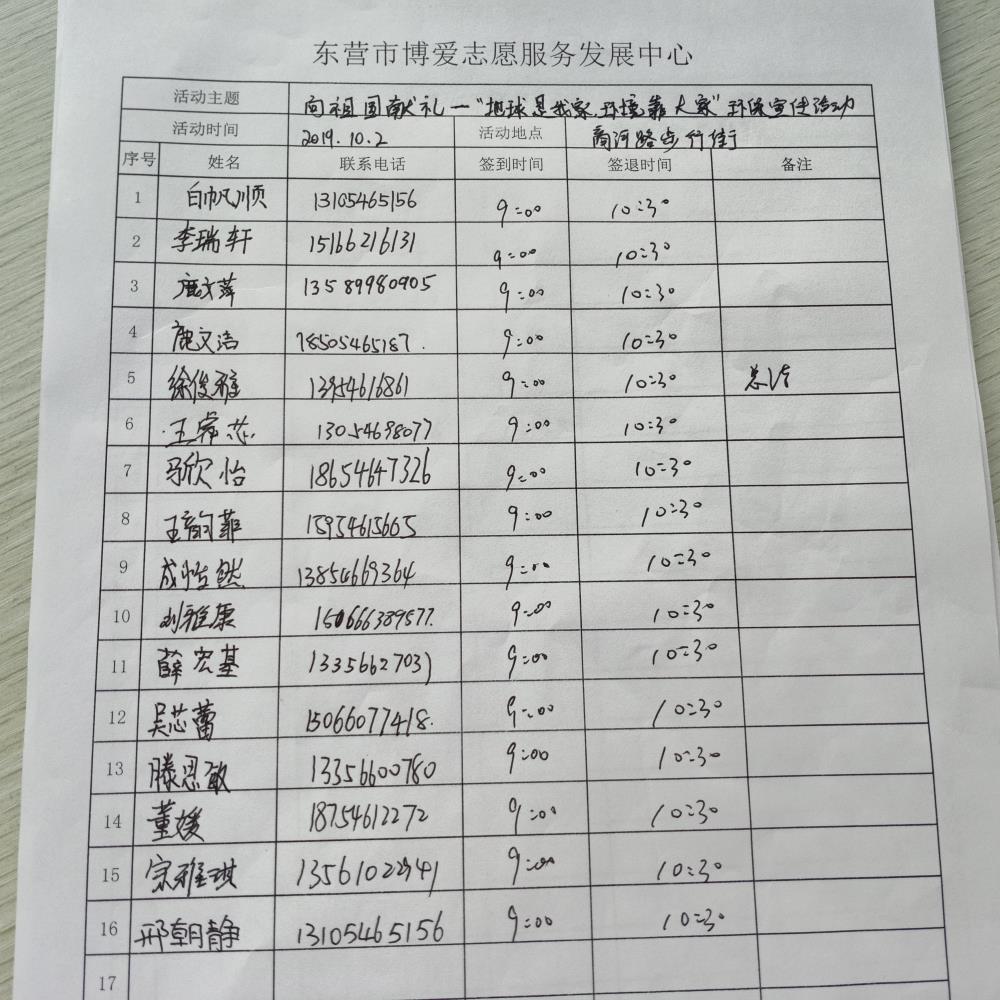 东营市博爱志愿服务发展中心
活动主题 向祖国献礼一"地球是我家,环境靠大家"环保宣传活动
活动时间 2019.10.2 活动地点 商河路步行街
序号 姓名 联系电话 签到时间 签退时间 备注
1 白帆顺 13105465156 9:00 10:30
2 李瑞轩 15166216131 9:00 10:30
3 鹿文萍 13589980905 9:00 10:30
4 鹿文洁 18505465187. 9:00 10:30
5 徐俊雅 13954616861 9:00 10:30
6 王睿芯 13054698077 9:00 10:30
7 马欣怡 18654647326 9:00 10:30
8 王韵菲 15954615665 9:00 10:30
9 成皓然 13854669364 9:00 10:30
10 刘雅康 150666389577. 9:00 10:30
11 薛宏基 13356627031 9:00 10:30
12 吴芯蕾 15066077418. 9:00 10:30
13 滕思敏 13356600780 9:00 10:30
14 董媛 18754612272 9:00 10:30
15 宗雅琪 13561022941 9:00 10:30
16 邢朝静 13105465156 9:00 10:30
17